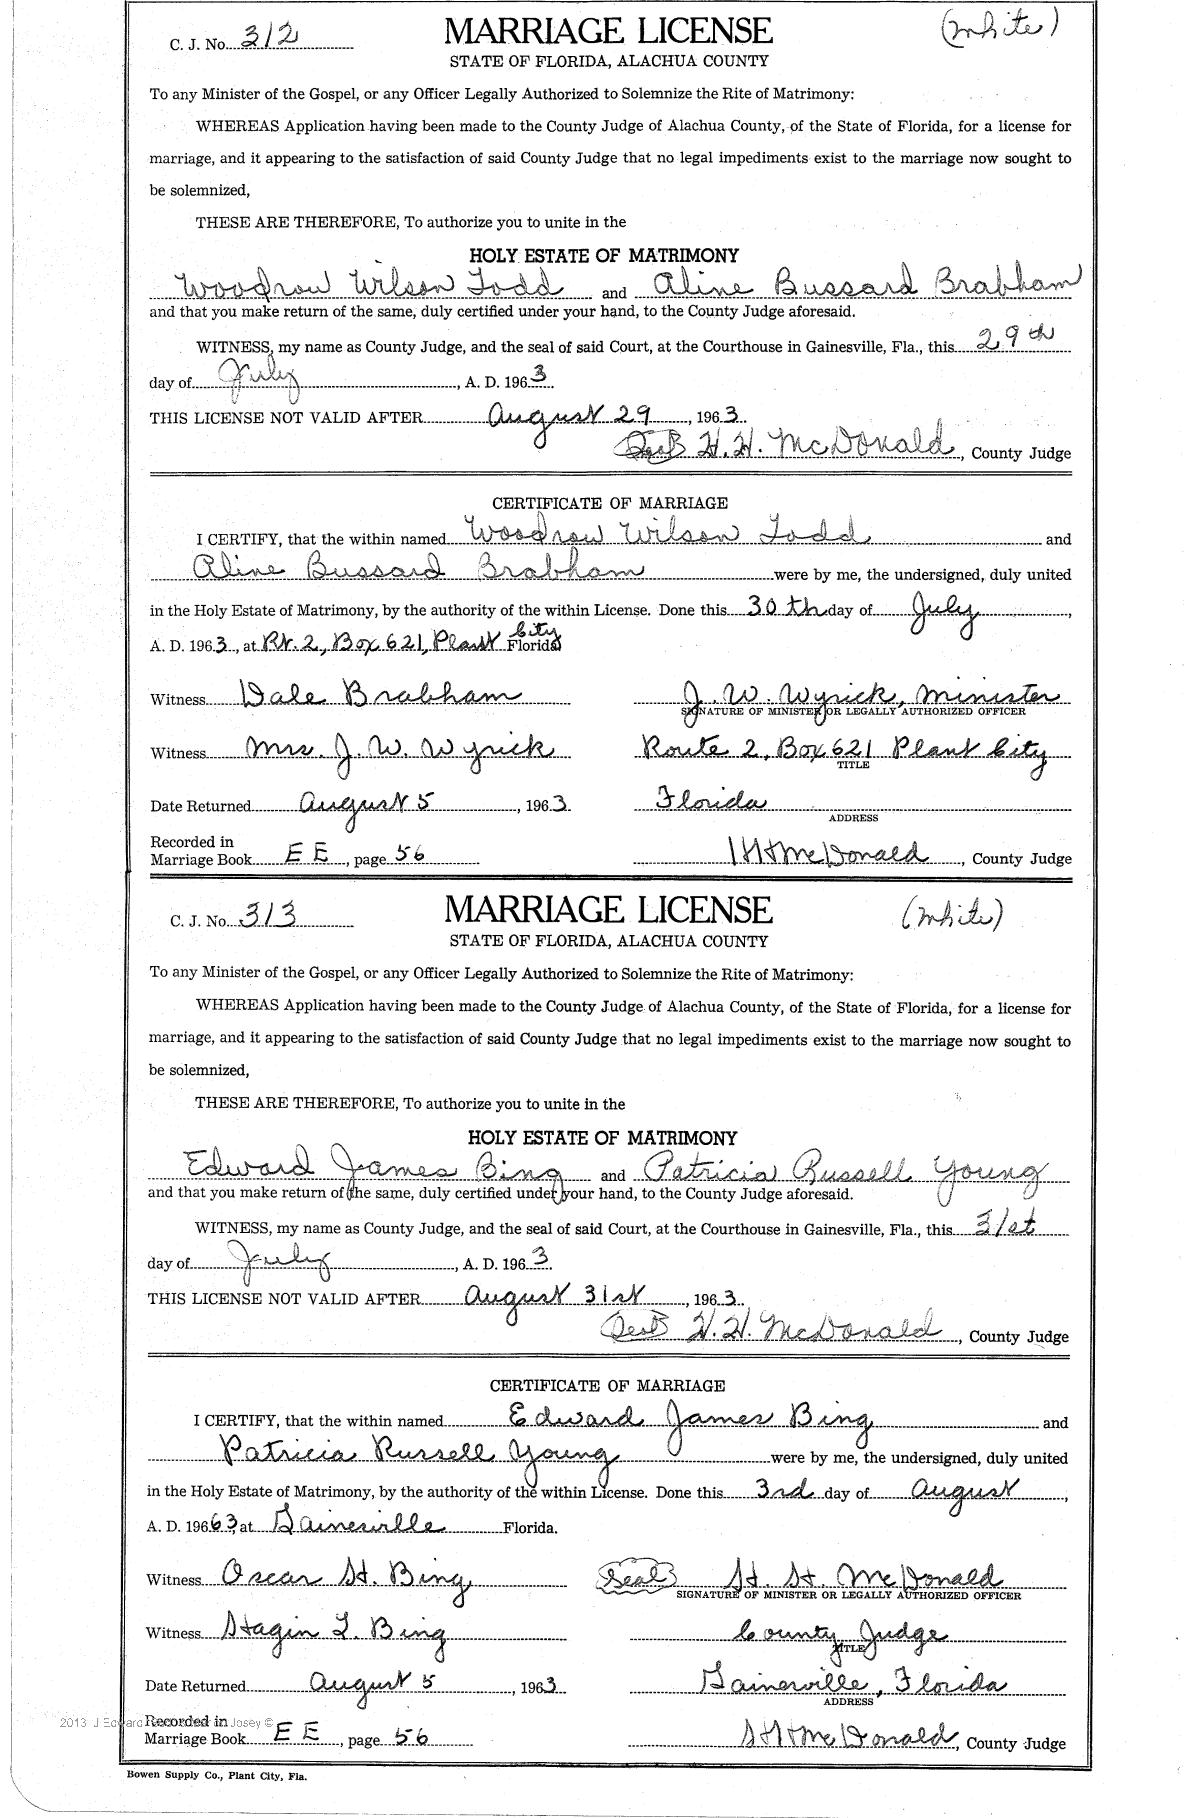 C. J. No. 312 MARRIAGE LICENSE (White)
STATE OF FLORIDA, ALACHUA COUNTY
To any Minister of the Gospel, or any Officer Legally Authorized to Solemnize the Rite of Matrimony:
WHEREAS Application having been made to the County Judge of Alachua County, of the State of Florida, for a license for
marriage, and it appearing to the satisfaction of said County Judge that no legal impediments exist to the marriage now sought to
be solemnized,
THESE ARE THEREFORE, To authorize you to unite in the
HOLY ESTATE OF MATRIMONY
Woodrow Wilson Todd and Aline Bussard Brabham
and that you make return of the same, duly certified under your hand, to the County Judge aforesaid.
WITNESS, my name as County Judge, and the seal of said Court, at the Courthouse in Gainesville, Fla., this 29th
day of July, A. D. 1963.
THIS LICENSE NOT VALID AFTER August 29, 1963.
Seal H. H. McDonald, County Judge
CERTIFICATE OF MARRIAGE
I CERTIFY, that the within named Woodrow Wilson Todd and
Aline Bussard Brabham were by me, the undersigned, duly united
in the Holy Estate of Matrimony, by the authority of the within License. Done this 30th day of July,
A. D. 1963, at Rt. 2, Box 621, Plant City Florida
Witness Dale Brabham J. W. Wyrick, Minister
SIGNATURE OF MINISTER OR LEGALLY AUTHORIZED OFFICER
Witness Mrs. J. W. Wyrick Route 2, Box 621 Plant City
TITLE
Date Returned August 5, 1963 Florida
ADDRESS
Recorded in
Marriage Book EE, page 56 HH McDonald, County Judge
C. J. No. 313 MARRIAGE LICENSE (White)
STATE OF FLORIDA, ALACHUA COUNTY
To any Minister of the Gospel, or any Officer Legally Authorized to Solemnize the Rite of Matrimony:
WHEREAS Application having been made to the County Judge of Alachua County, of the State of Florida, for a license for
marriage, and it appearing to the satisfaction of said County Judge that no legal impediments exist to the marriage now sought to
be solemnized,
THESE ARE THEREFORE, To authorize you to unite in the
HOLY ESTATE OF MATRIMONY
Edward James Bing and Patricia Russell Young
and that you make return of the same, duly certified under your hand, to the County Judge aforesaid.
WITNESS, my name as County Judge, and the seal of said Court, at the Courthouse in Gainesville, Fla., this 31st
day of July, A. D. 1963.
THIS LICENSE NOT VALID AFTER August 31st, 1963.
Seal H. H. McDonald, County Judge
CERTIFICATE OF MARRIAGE
I CERTIFY, that the within named Edward James Bing and
Patricia Russell Young were by me, the undersigned, duly united
in the Holy Estate of Matrimony, by the authority of the within License. Done this 3rd day of August,
A. D. 19663, at Gainesville Florida.
Witness Oscar H. Bing Seal H. H. McDonald
SIGNATURE OF MINISTER OR LEGALLY AUTHORIZED OFFICER
Witness Hagin L. Bing County Judge
TITLE
Date Returned August 5, 1963 Gainesville, Florida
ADDRESS
Recorded in
2013 J Edward Josey ©
Marriage Book EE, page 56 HH McDonald, County Judge
Bowen Supply Co., Plant City, Fla.